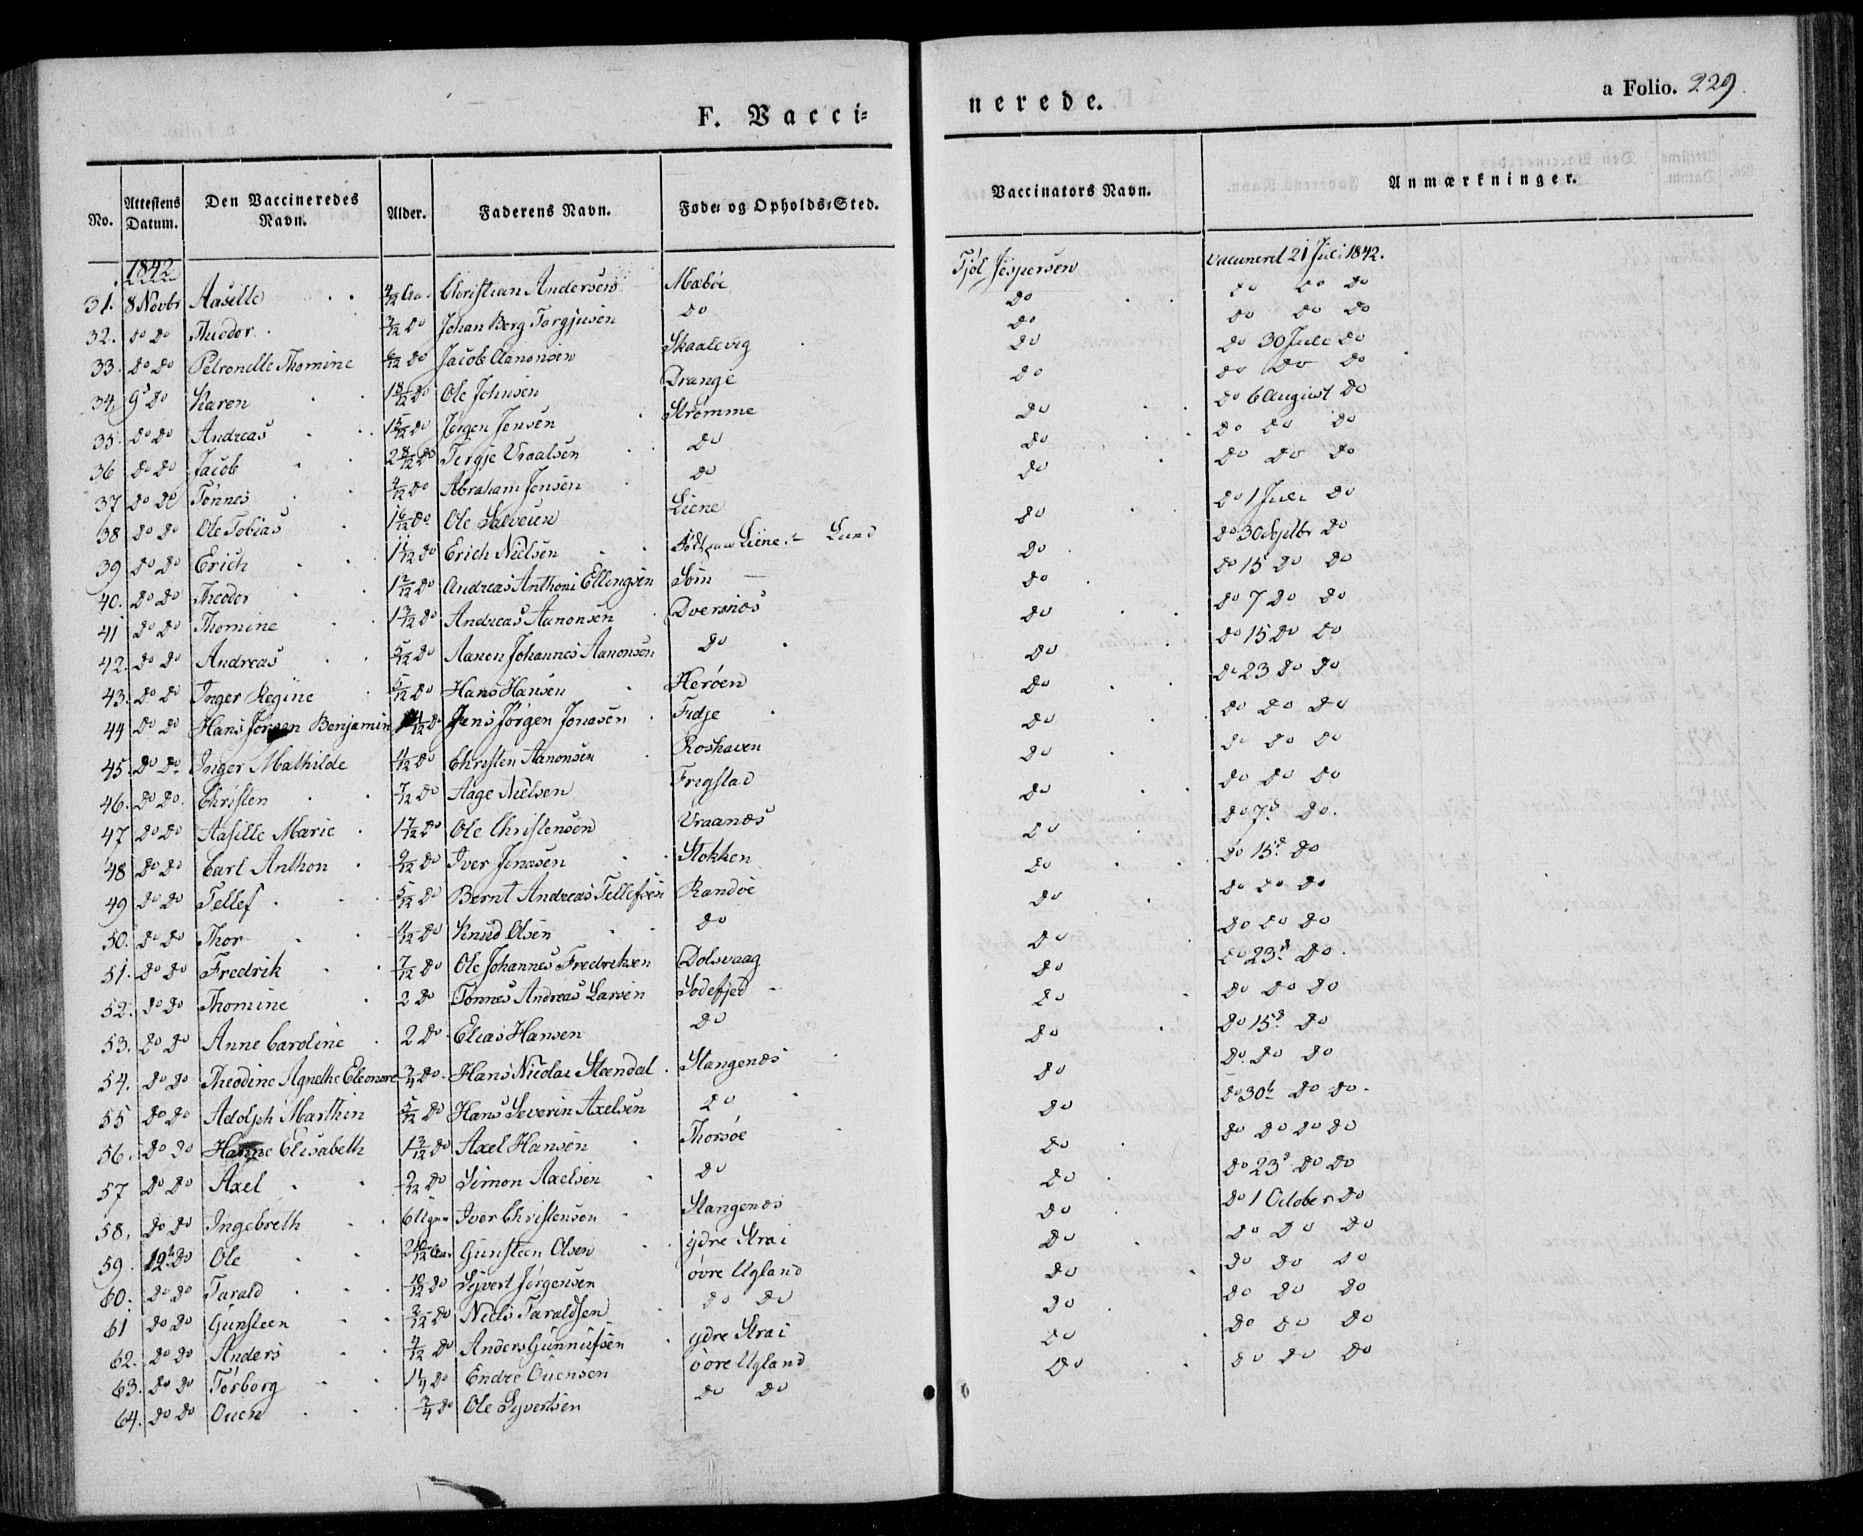 F. Vacci=
nerede.
a Folio. 229.
No. Attestens Datum. Den Vaccineredes Navn. Alder. Faderens Navn. Føde- og Opholds-Sted. Vaccinators Navn. Anmærkninger.
1842
31. 8 Novbr Aasille 4/12 Christian Andersen Mæbøe Jespersen vaccineret 21 Juli 1842.
32. do do Thedor 3/12 do Johan Berg Torgjusen do do do do do
33. do do Petronelle Thomine 6/12 do Jacob Aanonsen Skaalevig do do do do
34. 9d do Karen 1 8/12 do Ole Johnsen Drange do do 30 Juli do
35. do do Andreas 1 5/12 do Jørgen Jensen Strømme do do do do
36 do do Jacob 2 8/12 do Tergje Vraalsen do do do 6 August do
37 do do Tønnes 4/12 do Abraham Jensen do do do do do
38 do do Ole Tobias 1 6/12 do Ole Salvesen Liene do do do do
39 do do Erich 1 1/12 do Erich Nielsen Født paa Liene Lund do do 1 Juli do
40. do do Theodor 1 2/12 do Andreas Anthoni Ellingsen Søm do do 30 Septbr do
41 do do Thomine 1 3/12 do Andreas Aanonsen Dversnæs do do 15 do do
42. do do Andreas 5/12 do Aanon Johannes Aanonsen do do do 7 do do
43. do do Inger Regine 5/12 do Hans Hansen Herøen do do 15 do do
44 do do Hans Jørgen Benjamin do Jens Jørgen Jonasen Fidje do do 23 do do
45. do do Inger Mathilde 4/12 do Christen Aanonsen Roshaven do do do do
46. do do Christen 7/12 do Aage Nielsen Frigstad do do do do
47 do do Aasille Marie 1 7/12 do Ole Christensen Vraanæs do do do do
48 do do Carl Anthon 9/12 do Iver Jonasen Stokken do do 7d do.
49 do do Tellef 5/12 do Bernt Andreas Tellefsen Randøe do do 15d do
50. do do Thor 4/12 do Knud Olsen do do do do do
51. do do Fredrik 7/12 do Ole Johannes Fredriksen Dolsvaag do do do do
52. do do Thomine 2 do Tønnes Andreas Larsen Sodefjed do do 23d do.
53. do do Anne Caroline 2 do Elias Hansen do do do do do
54. do do Theodine Agnethe Eleonore 3/4 do Hans Nicolai Steendal Stangenæs do do 15d do
55 do do Adolph Marthin 5/12 do Hans Severin Axelsen do do do do do
56. do do Hanne Elisabeth 1 3/12 do Axel Hansen Thorsøe do do 30te do do.
57 do do Axel 2/12 do Simon Axelsen do do do do do do
58. do do Ingebreth 6 Ugr Iver Christensen Stangenæs do do 23d do do
59. 12te do Ole 2 10/12 Gunsteen Olsen ydre Strai do do 1 October do
60. do do Tarald 10/12 do Syvert Jørgensen øvre Ugland do do do do
61 do do Gunsteen 3/12 do Niels Taraldsen do do do do do do
62. do do Anders 4/12 do Anders Gunnufsen ydre Strai do do do do
63. do do Torborg 1 1/4 do Endre Ouensen øvre Ugland do do do do
64. do do Ouen 3/4 do Ole Syvertsen do do do do do do